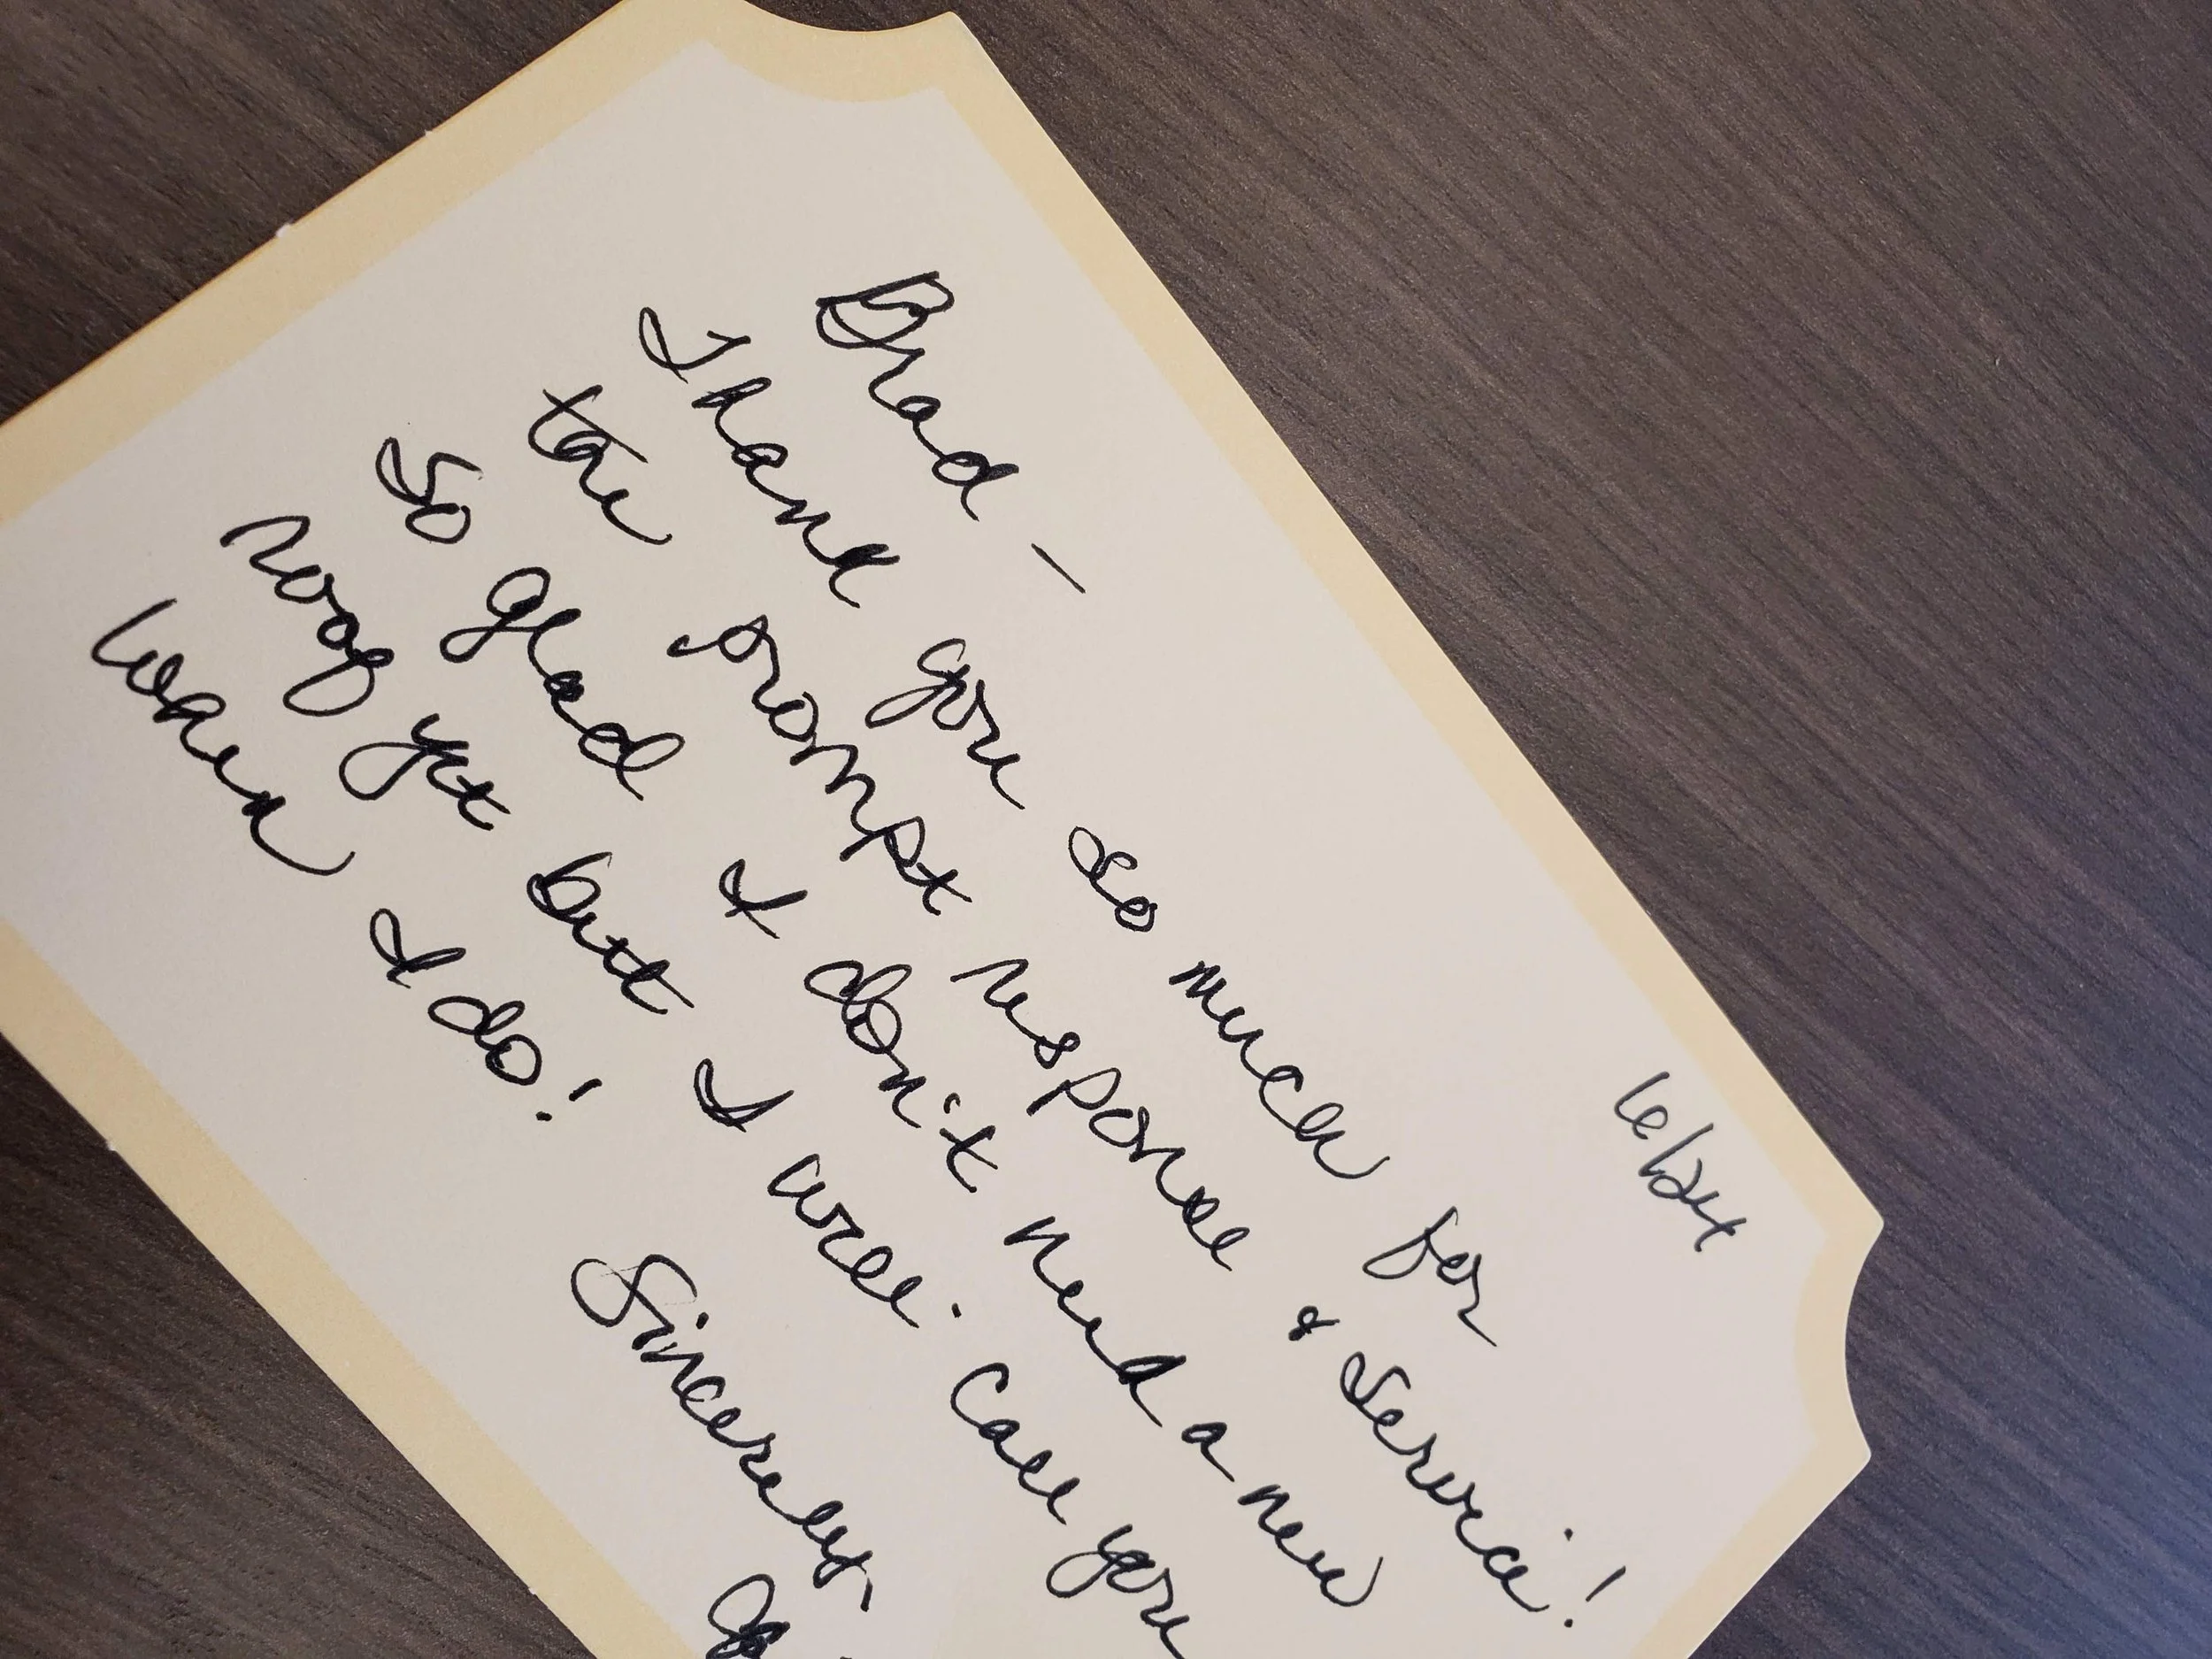 6/24
Brad -
Thank you so much for
the prompt response & service!
So glad I don't need a new
roof yet but I will call you
when I do!
Sincerely,